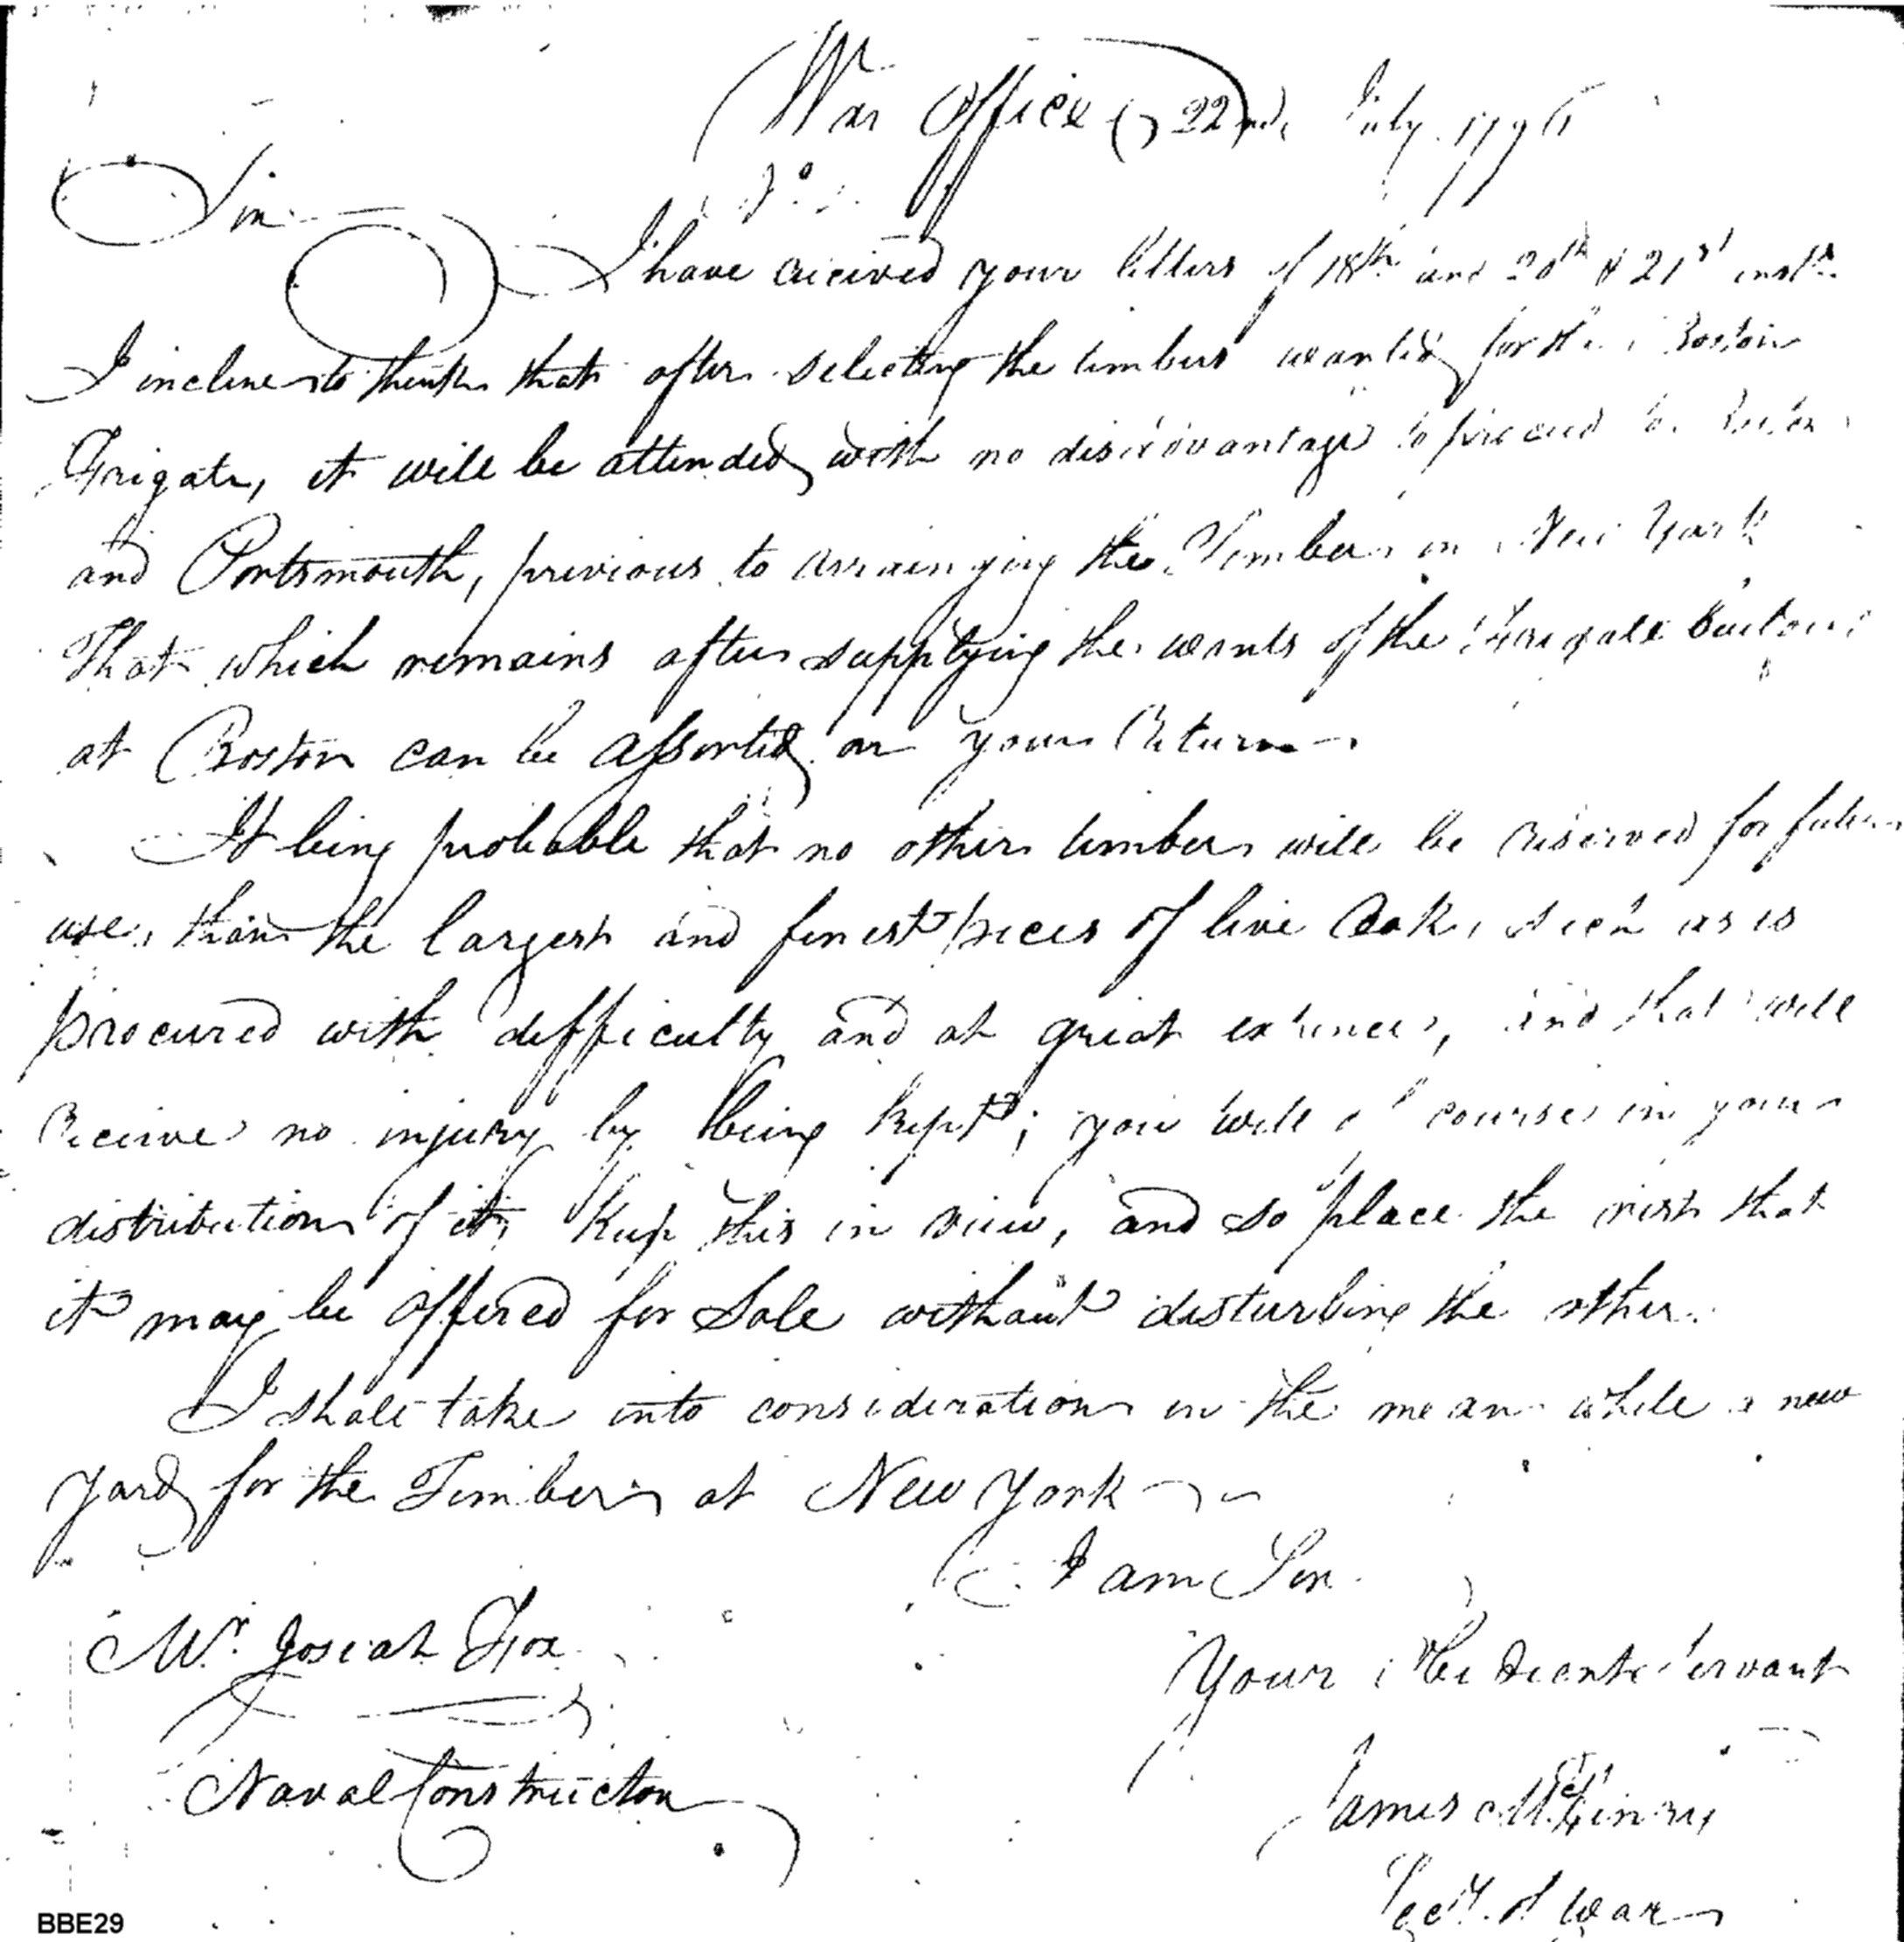 War Office 22nd July 1796
Sir
I have received your letters of 18th and 20th & 21st inst.
I incline to think that after selecting the timbers wanted for the Boston
Frigate, it will be attended with no disadvantage to proceed to Boston
and Portsmouth, previous to arrainging the Timber in New York
That which remains after supplying the wants of the Frigate building
at Boston can be assorted on your return
It being probable that no other timber will be reserved for future
use, than the largest and finest pieces of live Oak, such as is
procured with difficulty and at great expence, and that will
receive no injury by being kept; you will of course in your
distribution of it, keep this in view, and so place the rest that
it may be offered for Sale without disturbing the other.
I shall take into consideration in the mean while a new
yard for the Timber at New York
I am Sir
Mr. Josiah Fox
Your Obedient Servant
Naval Constructor
James McHenry
Secy. of War
BBE29